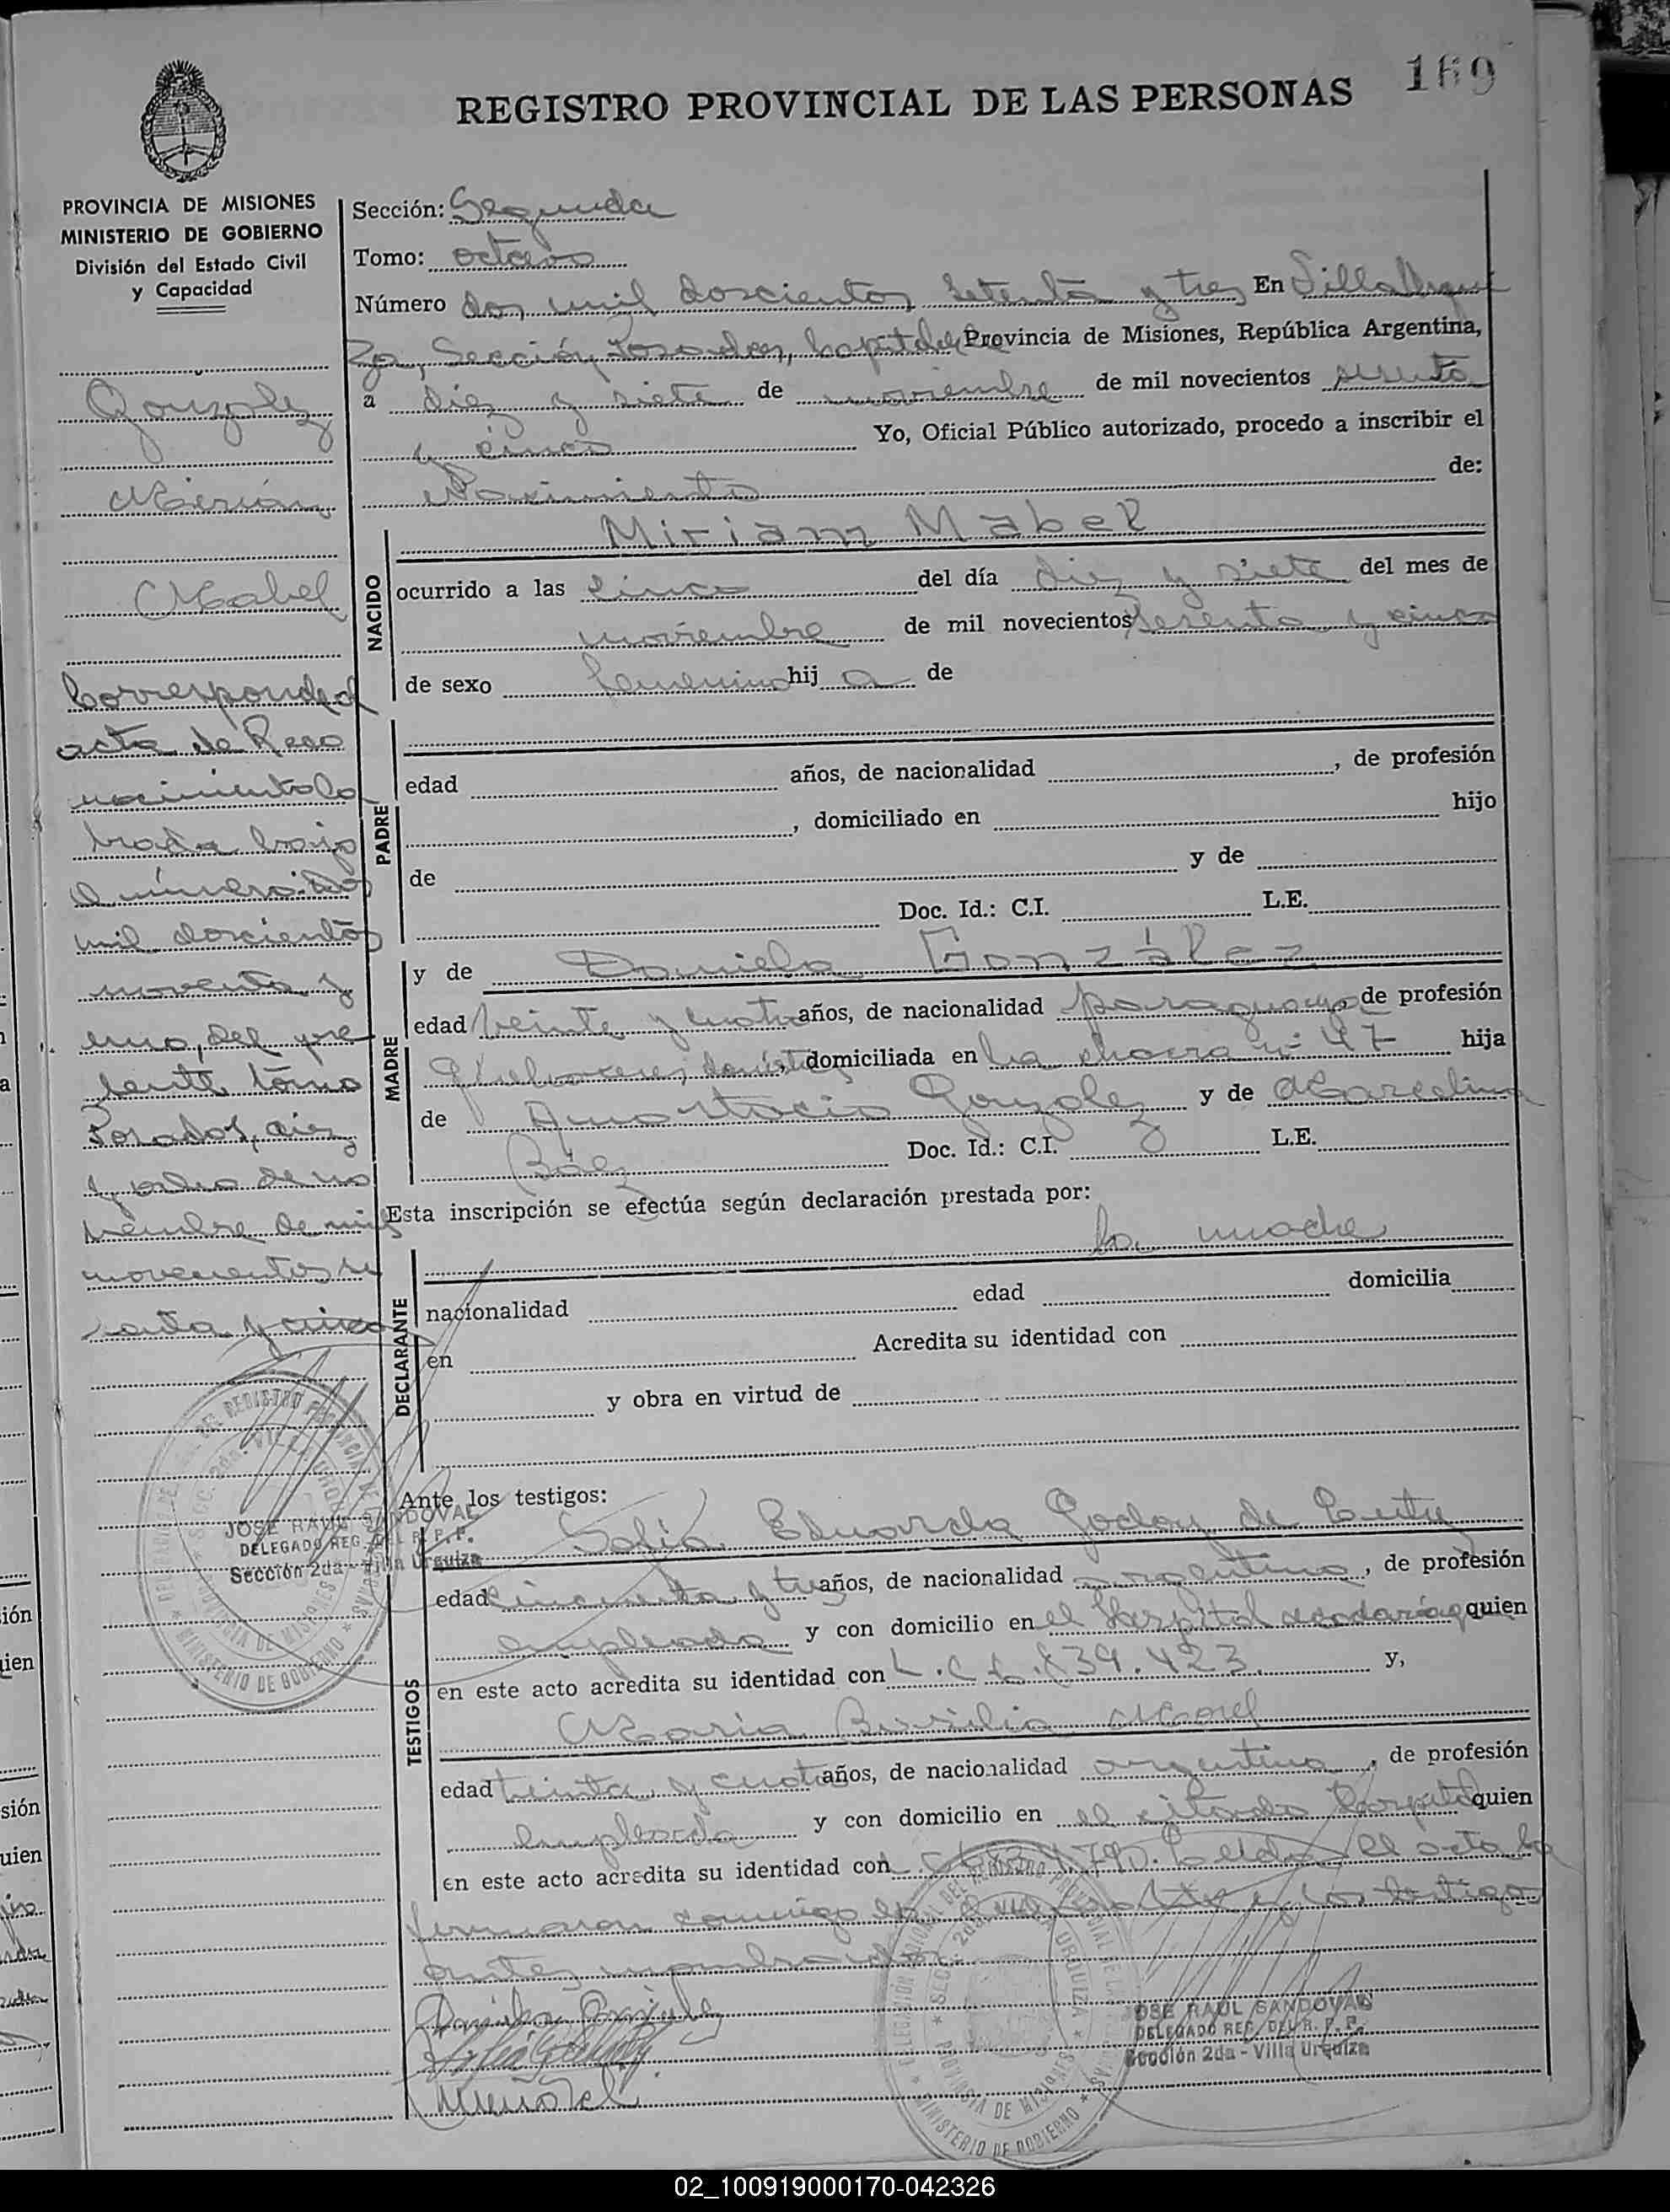 169
REGISTRO PROVINCIAL DE LAS PERSONAS
PROVINCIA DE MISIONES
MINISTERIO DE GOBIERNO
División del Estado Civil
y Capacidad
González
Miriam
Mabel
Corresponde al
acta de Reco
nocimiento la
brada bajo
el número: dos
mil doscientos
noventa y
uno, del pre
sente tomo
Posadas, diez
y ocho de no
viembre de mil
novecientos se
senta y cinco
Sección: Segunda
Tomo: octavo
Número dos mil doscientos setenta y tres En Villa Urquiza
2a, Sección Posadas, Capital de Provincia de Misiones, República Argentina,
a diez y siete de noviembre de mil novecientos sesenta
y cinco Yo, Oficial Público autorizado, procedo a inscribir el
Nacimiento de:
NACIDO
Miriam Mabel
ocurrido a las cinco del día diez y siete del mes de
noviembre de mil novecientos sesenta y cinco
de sexo femenino hij a de
PADRE
edad años, de nacionalidad , de profesión
, domiciliado en hijo
de y de
Doc. Id.: C.I. L.E.
MADRE
y de Daniela González
edad veinte y cuatro años, de nacionalidad paraguaya de profesión
domiciliada en La chacra nº 47 hija
de Anastacio González y de Marcelina
Báez Doc. Id.: C.I. L.E.
Esta inscripción se efectúa según declaración prestada por:
la madre
DECLARANTE
nacionalidad edad domicilia
en Acredita su identidad con
y obra en virtud de
Ante los testigos:
TESTIGOS
Sofia Eduarda Godoy de
edad cincuenta y tres años, de nacionalidad argentina, de profesión
empleada y con domicilio en el Hospital Madariaga quien
en este acto acredita su identidad con L.C. 839.423 y,
Maria Basilia Morel
edad treinta y cuatro años, de nacionalidad argentina, de profesión
empleada y con domicilio en el citado hospital quien
en este acto acredita su identidad con 790. Leída el acta la
firmaron conmigo la y los testigos
antes nombrados
JOSE RAUL SANDOVAL
DELEGADO REG. DEL R. P. P.
Sección 2da - Villa Urquiza
JOSE RAUL SANDOVAL
DELEGADO REG. DEL R. P. P.
Sección 2da - Villa Urquiza
02_100919000170-042326